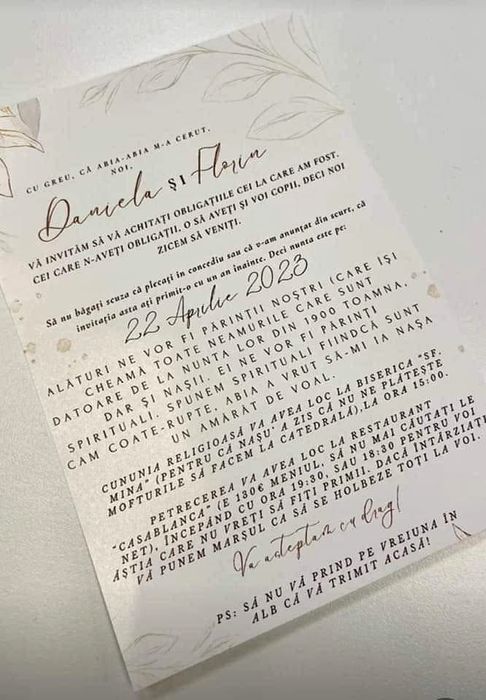 CU GREU, CĂ ABIA-ABIA M-A CERUT,
NOI,
Daniela ȘI Florin
VĂ INVITĂM SĂ VĂ ACHITAȚI OBLIGAȚIILE CEI LA CARE AM FOST.
CEI CARE N-AVEȚI OBLIGAȚII, O SĂ AVEȚI ȘI VOI COPII, DECI NOI
ZICEM SĂ VENIȚI.
Să nu băgați scuza că plecați în concediu sau că v-am anunțat din scurt, că
invitația asta ați primit-o cu un an înainte. Deci nunta este pe:
22 Aprilie 2023
ALĂTURI NE VOR FI PĂRINȚII NOȘTRI (CARE IȘI
CHEAMĂ TOATE NEAMURILE CARE SUNT
DATOARE DE LA NUNTA LOR DIN 1900 TOAMNA,
DAR ȘI NAȘII. EI NE VOR FI PĂRINȚI
SPIRITUALI. SPUNEM SPIRITUALI FIINDCĂ SUNT
CAM COATE-RUPTE, ABIA A VRUT SĂ-MI IA NAȘA
UN AMĂRÂT DE VOAL.
CUNUNIA RELIGIOASĂ VA AVEA LOC LA BISERICA "SF.
MINA" (PENTRU CĂ NAȘU' A ZIS CĂ NU NE PLĂTEȘTE
MOFTURILE SĂ FACEM LA CATEDRALĂ),LA ORA 15:00.
PETRECEREA VA AVEA LOC LA RESTAURANT
"CASABLANCA" (E 130€ MENIUL. SĂ NU MAI CĂUTAȚI LE
NET), ÎNCEPÂND CU ORA 19:30, SAU 18:30 PENTRU VOI
ĂȘTIA CARE NU VREȚI SĂ FIȚI PRIMII. DACĂ ÎNTÂRZIAȚI
VĂ PUNEM MARȘUL CA SĂ SE HOLBEZE TOȚI LA VOI.
Va asteptam cu drag!
PS: SĂ NU VĂ PRIND PE VREIUNA ÎN
ALB CĂ VĂ TRIMIT ACASĂ!